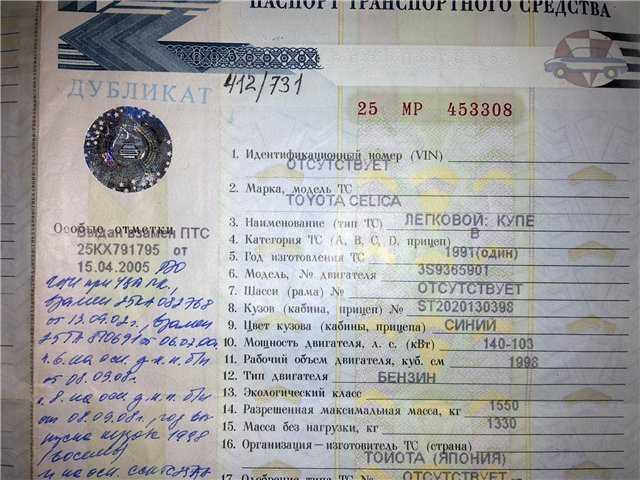 ПАСПОРТ ТРАНСПОРТНОГО СРЕДСТВА
ДУБЛИКАТ
412/731
25 МР 453308
1. Идентификационный номер (VIN) ОТСУТСТВУЕТ
2. Марка, модель ТС TOYOTA CELICA
3. Наименование (тип ТС) ЛЕГКОВОЙ: КУПЕ
4. Категория ТС (А, В, С, D, прицеп) В
5. Год изготовления ТС 1991(один)
6. Модель, № двигателя 3S9365901
7. Шасси (рама) № ОТСУТСТВУЕТ
8. Кузов (кабина, прицеп) № ST2020130398
9. Цвет кузова (кабины, прицепа) СИНИЙ
10. Мощность двигателя, л. с. (кВт) 140-103
11. Рабочий объем двигателя, куб. см 1998
12. Тип двигателя БЕНЗИН
13. Экологический класс
14. Разрешенная максимальная масса, кг 1550
15. Масса без нагрузки, кг 1330
16. Организация—изготовитель ТС (страна)
ТОЙОТА (ЯПОНИЯ)
17. Одобрение типа ТС № ОТСУТСТВУЕТ
Особые отметки
Выдан взамен ПТС
25КХ791795 от
15.04.2005
взамен 25КА082768
от 13.09.02г., взамен
25ТА810691 от 06.02.00
п.6. на осн. д.к.п. б/н
от 08.09.08г.
п.8. на осн. д.к.п. б/н
от 08.09.08г., год вы
пуска кузова 1998